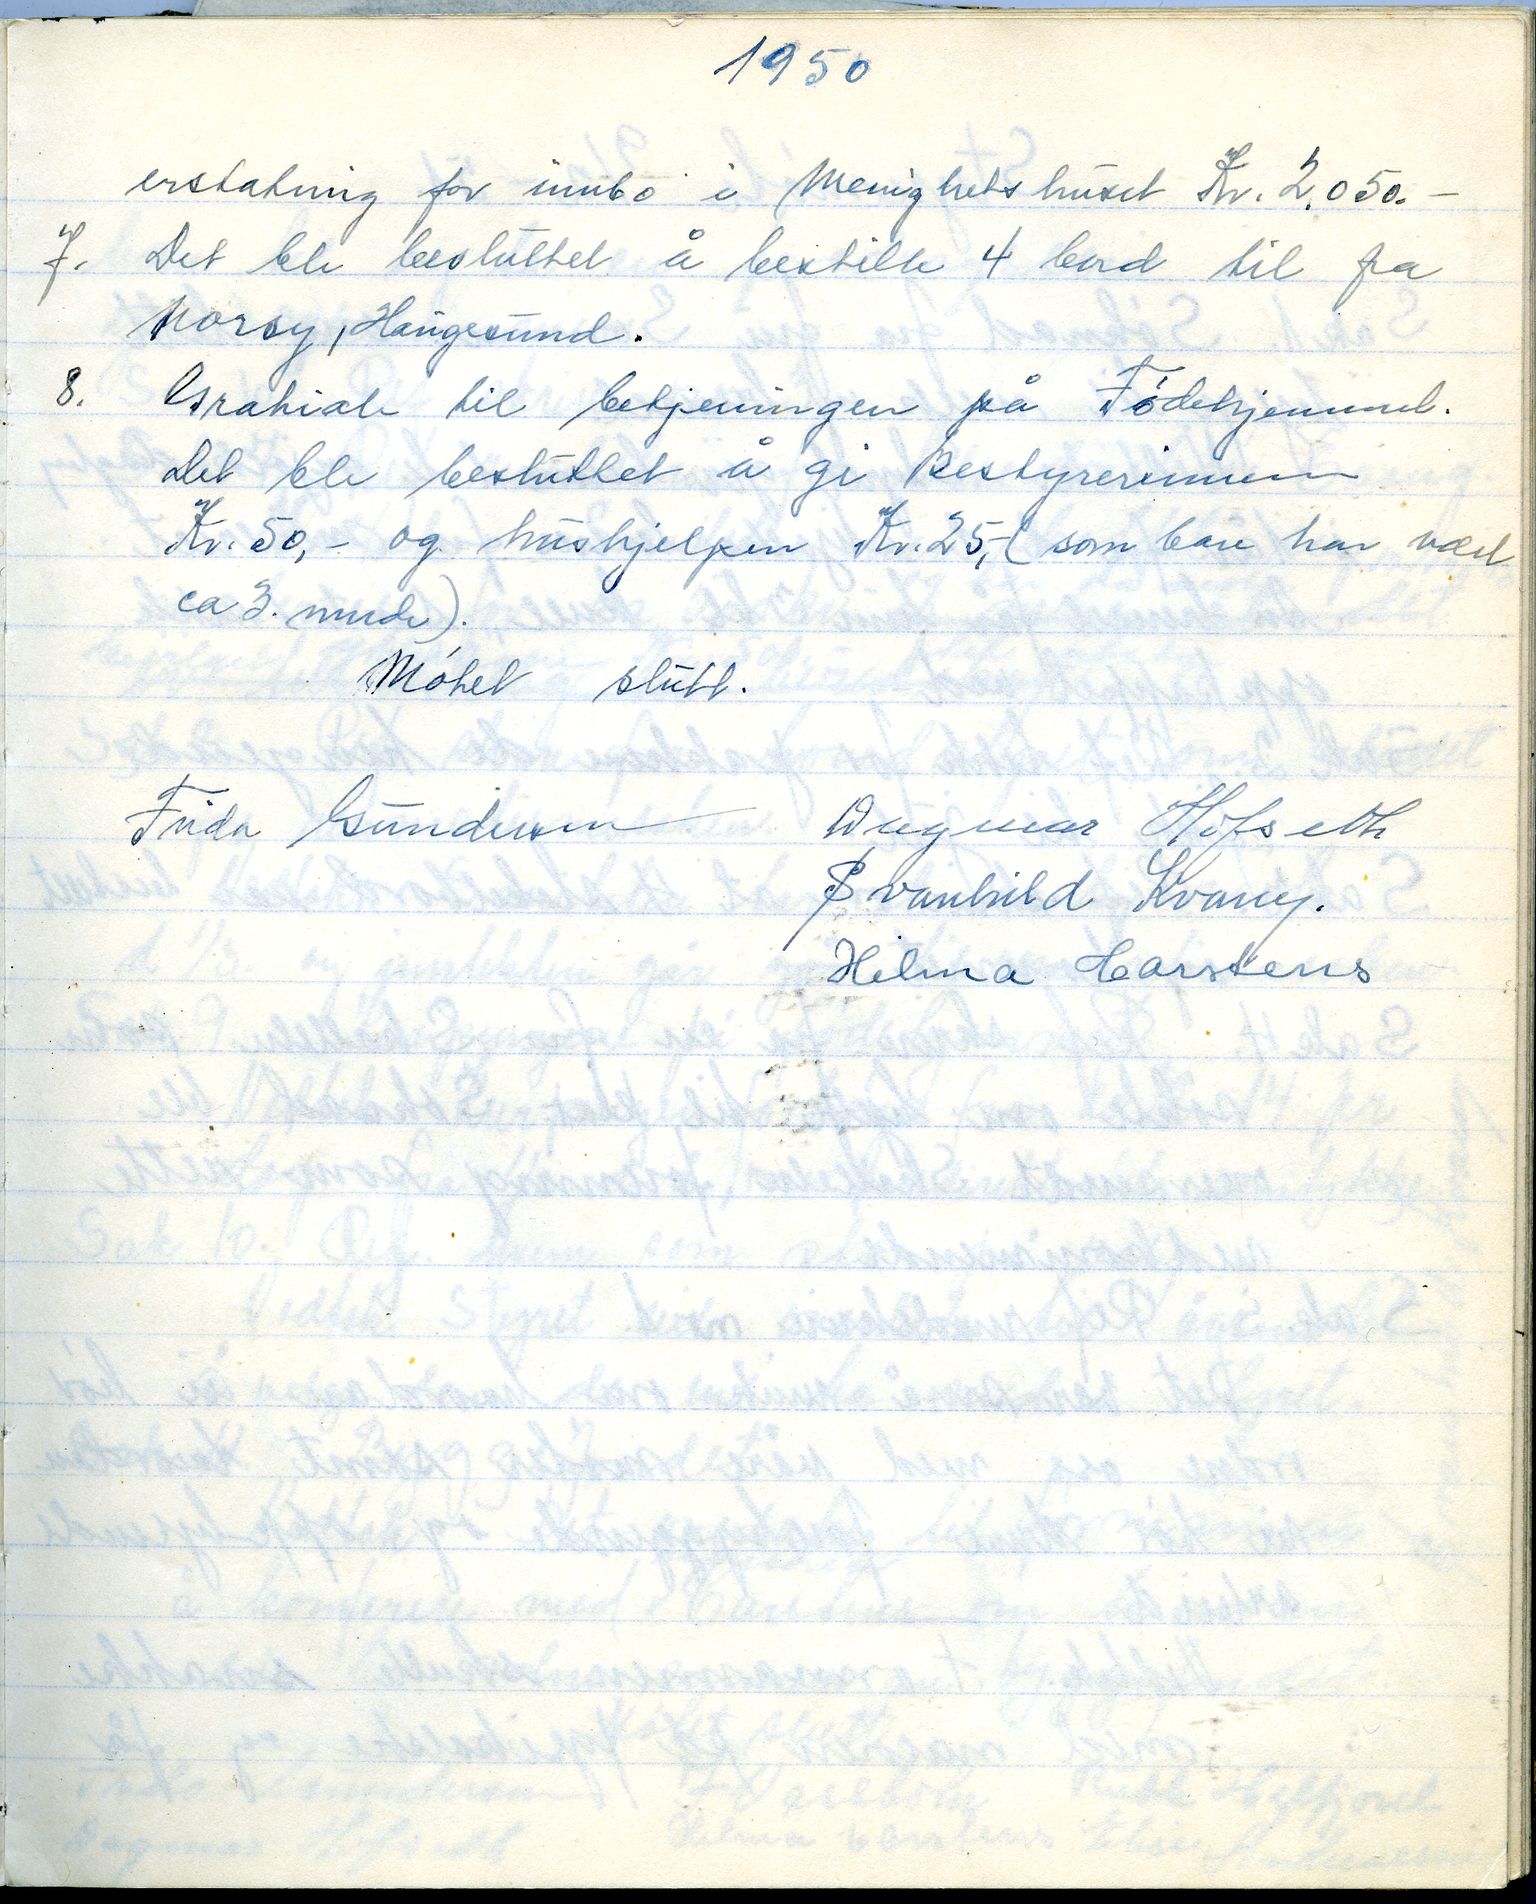 1950
erstatning for innbo i Menighetshuset Kr. 2.050.-
7. Det ble besluttet å bestille 4 bord til fra
Norsy, Haugesund.
8. Gratiale til betjeningen på Födehjemmet.
Det ble besluttet å gi Bestyrerinnen
Kr. 50,- og hushjelpen Kr. 25,- (som bare har vært
ca 3. mnde).
Mötet slutt.
Frida Gundersen
Dagmar Hofseth
Svanhild Kvamy.
Helma Carstens